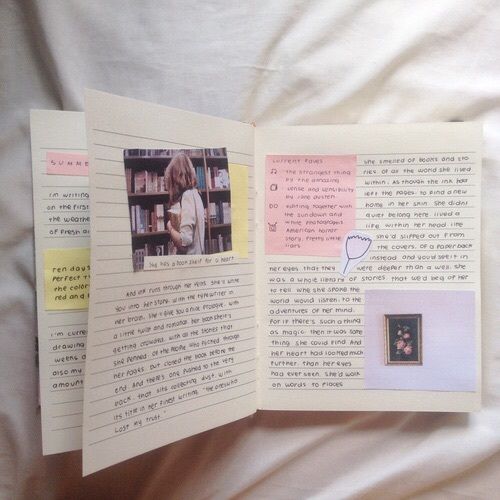 SUMME
i'm writing
on the first
the weathe
of fresh ai
ten days
Perfect t
the color
red and
i'm curre
drawing
weeks a
also my
amount
She has a book shelf for a heart
And ink runs through her veins. She'll write
you into her story with the typewriter in
her brain. She'll give you a nice prologue, with
a little humor and romance. Her bookshelf's
getting crowded, with all the stories that
she penned. Of the people who flicked through
her pages, but closed the book before the
end. And there's one pushed to the very
back, that sits collecting dust, with
its title in her finest writing "the ones who
lost my trust"
current faves
the strangest thing
by the amazing
sense and sensibility
by jane austen
editing together with
the sundown and
white photographs
American horror
story, pretty little
liars
she smelled of books and sto
ries of all the world she lived
within. As though the ink had
left the pages, to find a new
home in her skin. She didn't
quiet belong here lived a
life within her head like
she'd slipped out from
the covers, of a paperback
instead and you'd see it in
her eyes that they were deeper than a well. She
was a whole library of stories, that we'd beg of her
to tell. Why she spoke the
world would listen, to the
adventures of her mind.
For if there's such a thing
as magic, then it was some
thing she could find. And
her heart had loomed much
further, than her eyes
had ever seen. She'd walk
on words to places